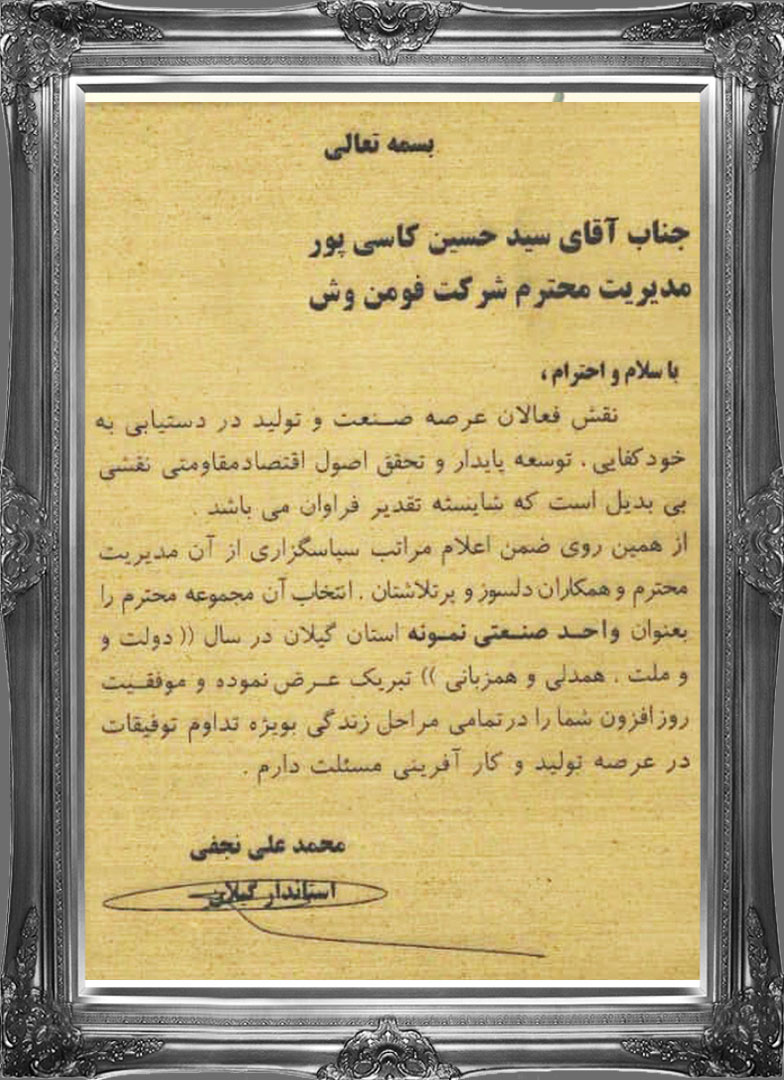 بسمه تعالی
جناب آقای سید حسین کاسی پور
مدیریت محترم شرکت فومن وش
با سلام و احترام ،
نقش فعالان عرصه صنعت و تولید در دستیابی به
خودکفایی . توسعه پایدار و تحقق اصول اقتصادمقاومتی نقشی
بی بدیل است که شایسته تقدیر فراوان می باشد .
از همین روی ضمن اعلام مراتب سپاسگزاری از آن مدیریت
محترم و همکاران دلسوز و پرتلاشتان . انتخاب آن مجموعه محترم را
بعنوان واحد صنعتی نمونه استان گیلان در سال (( دولت و
و ملت . همدلی و همزبانی )) تبریک عرض نموده و موفقیت
روزافزون شما را درتمامی مراحل زندگی بویژه تداوم توفیقات
در عرصه تولید و کار آفرینی مسئلت دارم .
محمد علی نجفی
استاندار گیلان